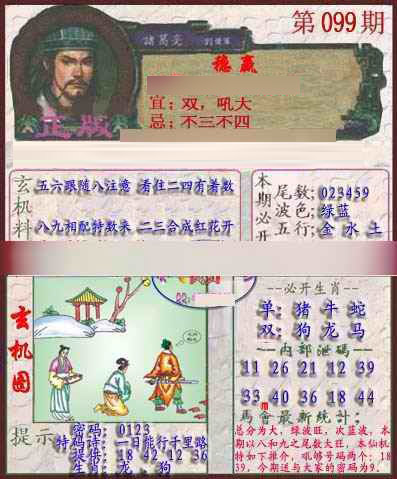 第099期
諸葛亮
穩贏
宜:双,吼大
忌:不三不四
正版
玄机料
五六跟随八注意 看住二四有着数
八九相配特数来 二三合成红花开
本期必开
尾数:023459
波色:绿蓝
五行:金 水 土
玄机图
必开生肖
单:猪 牛 蛇
双:狗 龙 马
内部泄碼
11 26 21 12 39
33 40 36 18 44
馬會最新统计:
总分为大,绿波旺,次蓝波,本
期以八和九之尾数大旺,本仙机
特如下推介,吼够号码两个:18
39,今期送与大家的密码为9.
提示
密码:0123
特码诗:一日能行千里路
提搖:18 42 12 36
生肖:龙、狗